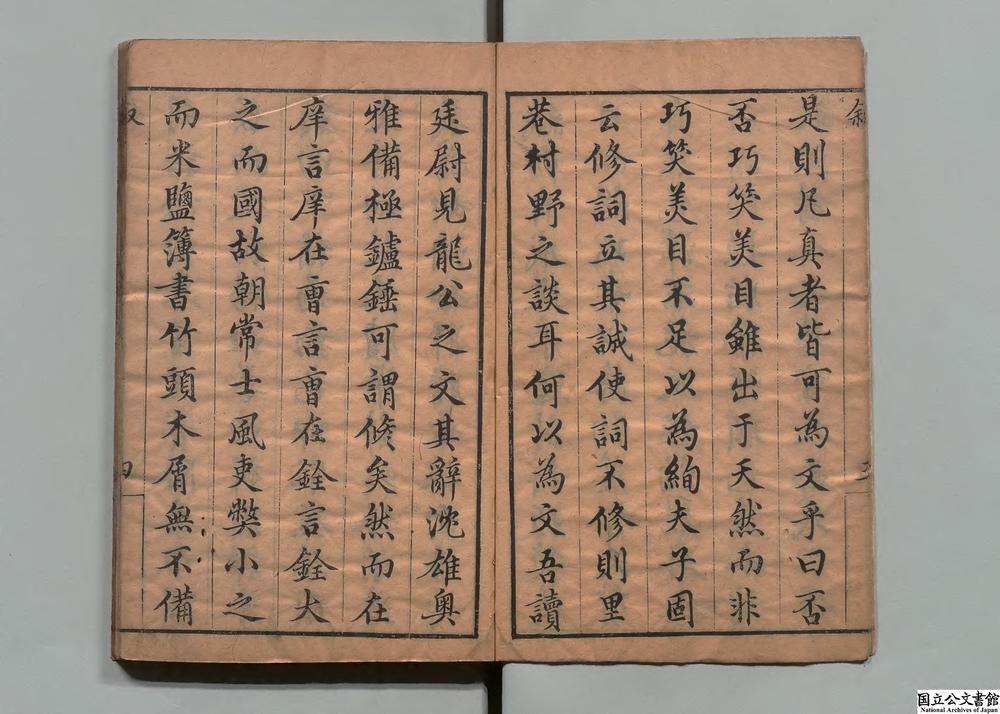 是則凡真者皆可為文乎曰否
否巧笑美目雖出于天然而非
巧笑美目不足以為絢夫子固
云修詞立其誠使詞不修則里
巷村野之談耳何以為文吾讀
廷尉見龍公之文其辭沈雄奥
雅備極鑪錘可謂修矣然而在
庠言庠在曹言曹在銓言銓大
之而國故朝常士風吏弊小之
而米鹽簿書竹頭木屑無不備
国立公文書館
National Archives of Japan